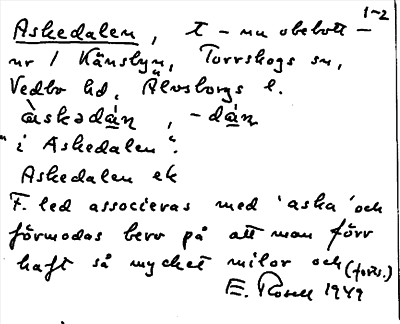 1-2
Askedalen, t - nu obebott -
ur / Känsbyn, Torrskogs sn,
Vedbo hd, Älvsborgs l.
àskədá̤n, -dá̤n
"i Askedalen".
Askedalen ek
F. led associeras med 'aska' och
förmodas bero på att man förr
haft så mycket milor och (forts.)
E. Rosell 1949